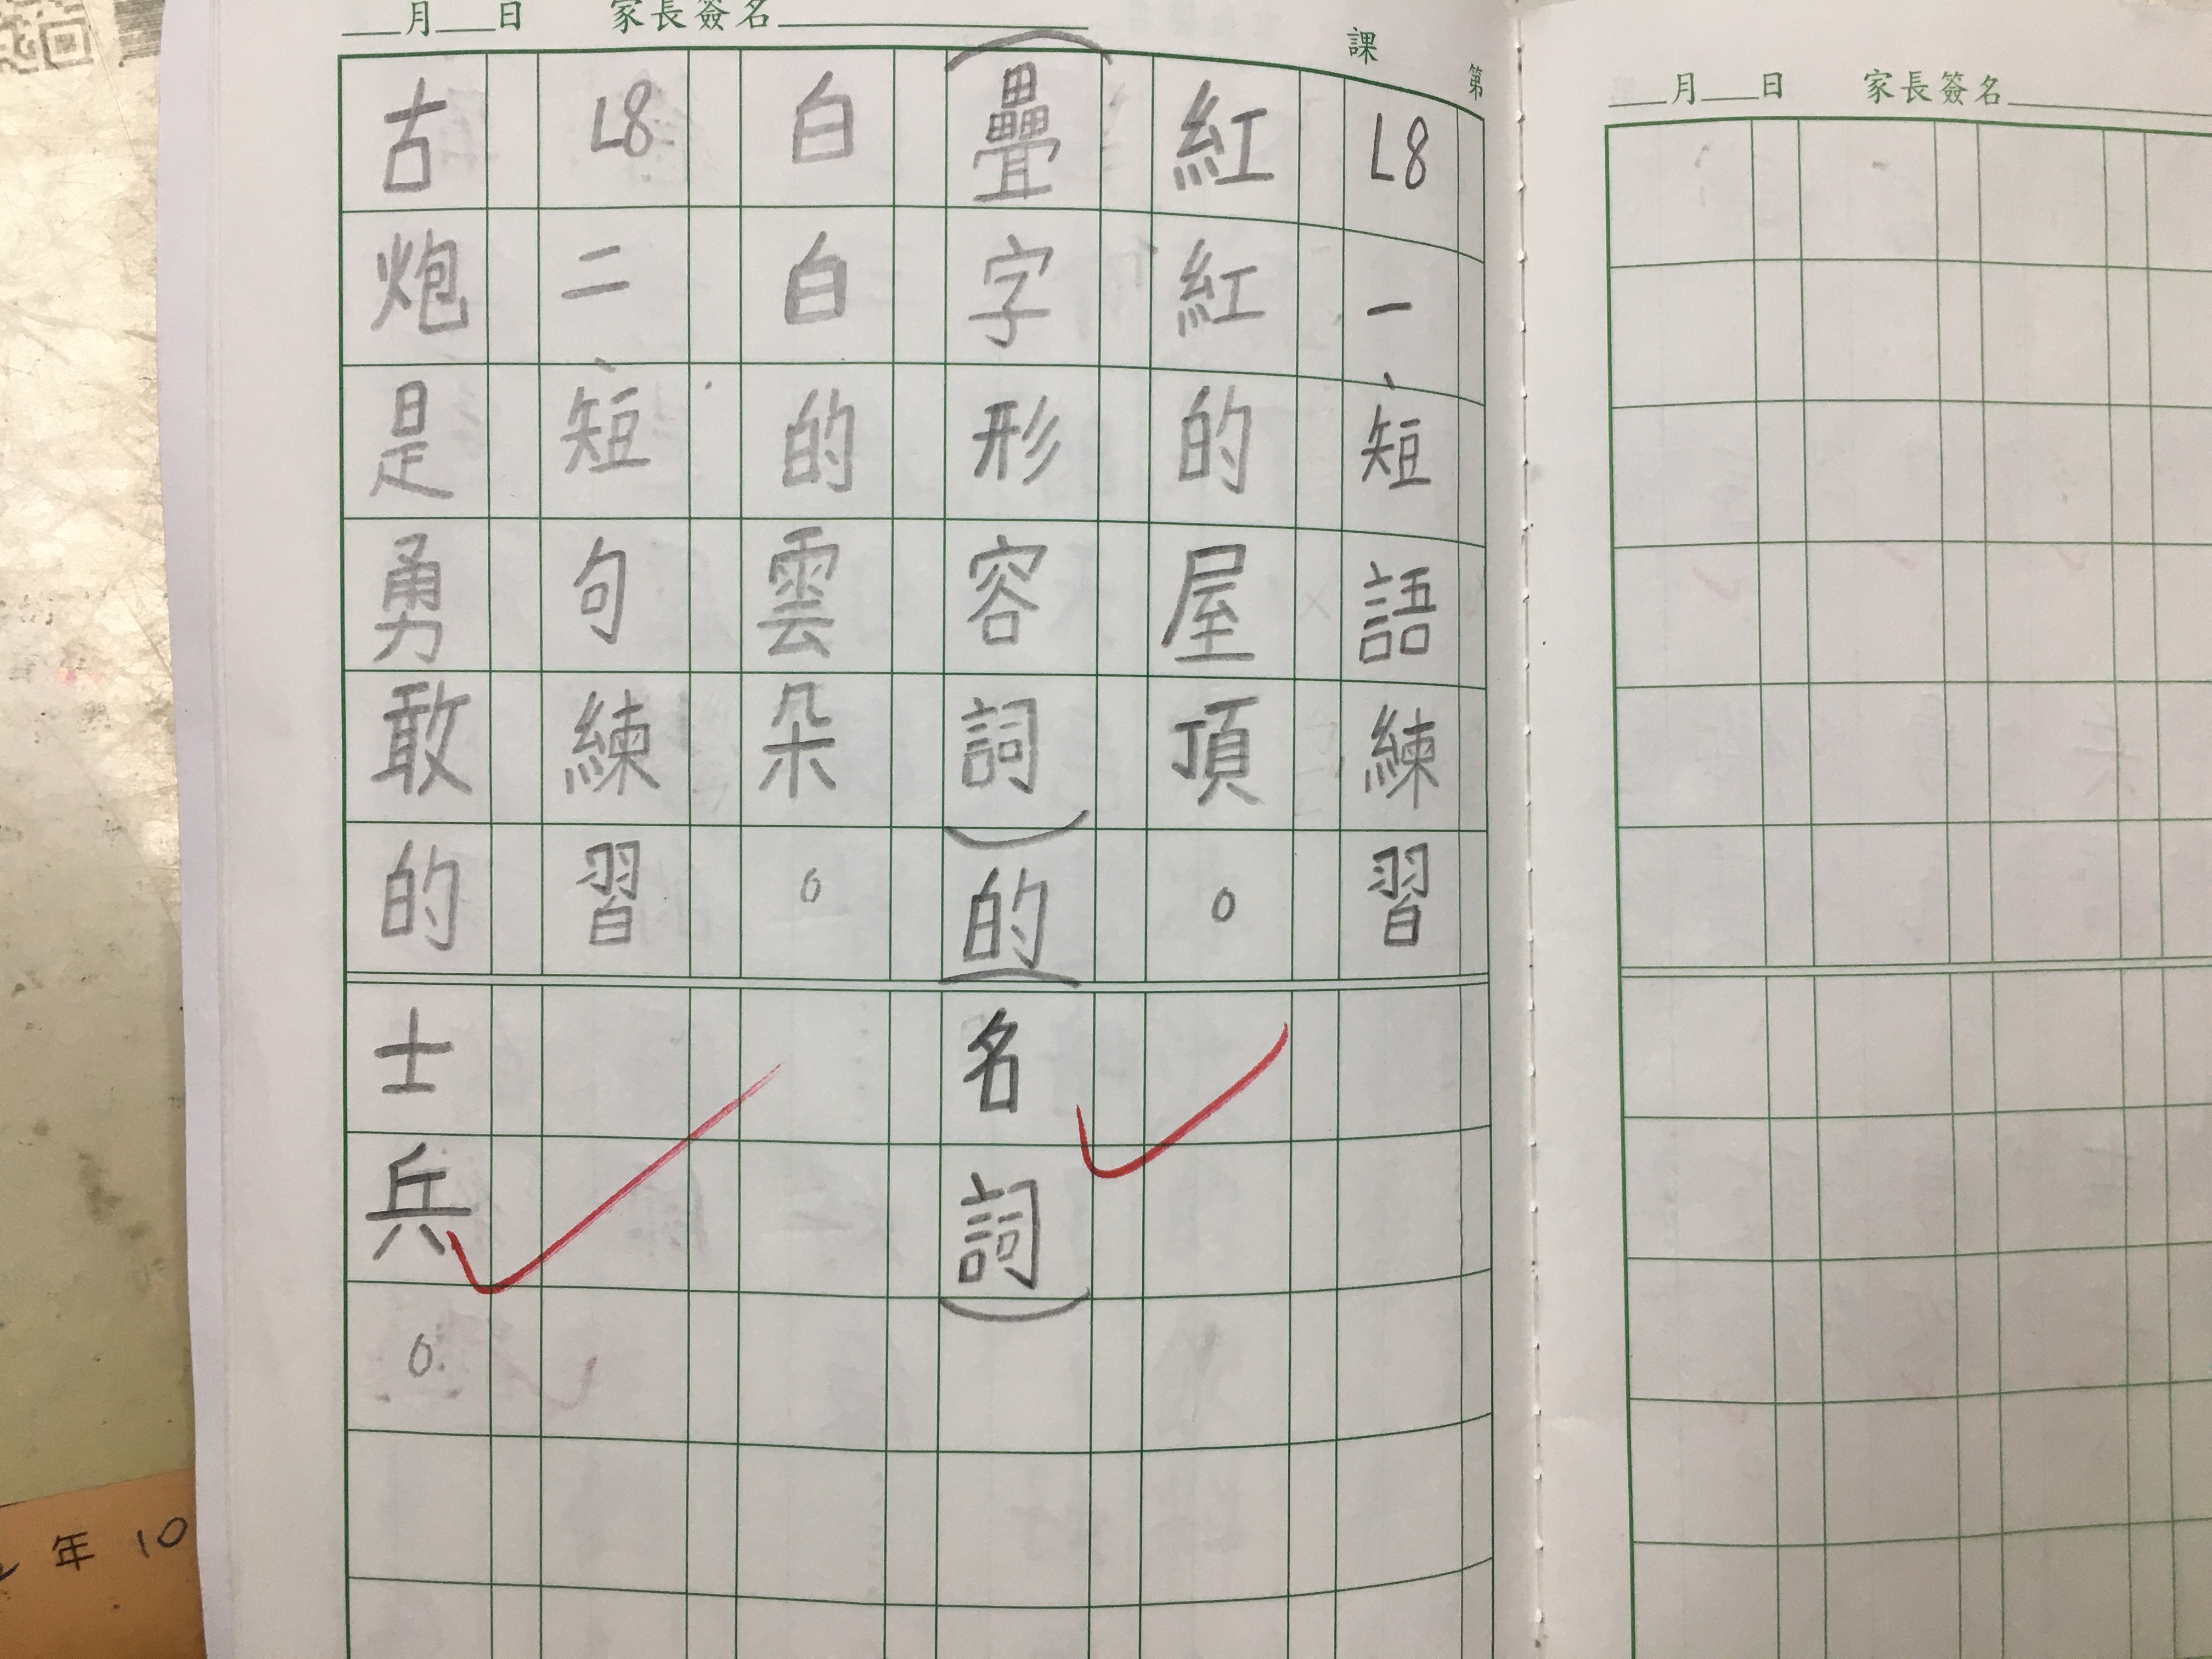 ___月___日 家長簽名
第 課
L8一、短語練習
紅紅的屋頂。
(疊字形容詞)的(名詞)
白白的雲朵。
L8二、短句練習
古炮是勇敢的士兵。
___月___日 家長簽名
年10